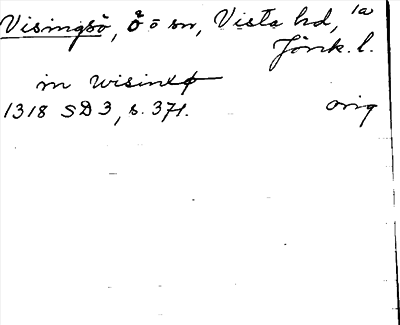 Visingsö, ö ö sn, Vista hd, 1a
Jönk. l.
in wisinxø
1318 SD 3, s. 371. orig